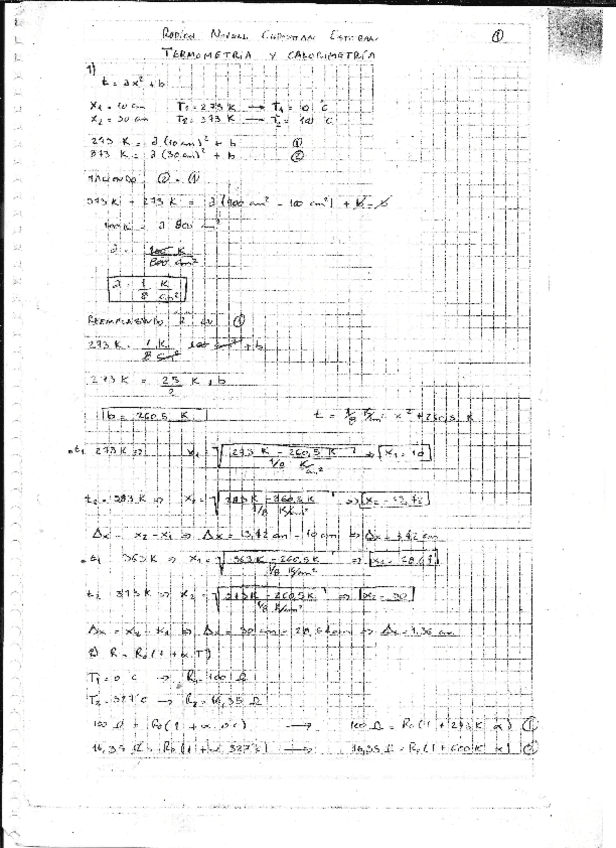 ①
TERMOMETRÍA Y CALORIMETRÍA
1)
t = ax² + b
X₁ = 10 cm T₁ = 273 K → T₁ = 0 °C
X₂ = 30 cm T₂ = 373 K → T₂ = 100 °C
273 K = a (10 cm)² + b ①
373 K = a (30 cm)² + b ②
HACIENDO ② - ①
373 K - 273 K = a (900 cm² - 100 cm²) + b - b
100 K = a 800 cm²
a = 100 K / 800 cm²
a = 1/8 K/cm²
REEMPLAZANDO a EN ①
273 K = 1/8 K/cm² 100 cm² + b
273 K = 25/2 K + b
b = 260.5 K t = 1/8 K/cm² x² + 260.5 K
t₁ 273 K ⇒ x₁ = √(273 K - 260,5 K / 1/8 K/cm²) ⇒ x₁ = 10
t₂ = 283 K ⇒ x₂ = √(283 K - 260,5 K / 1/8 K/cm²) ⇒ x₂ = 13,42
Δx = x₂ - x₁ ⇒ Δx = 13,42 cm - 10 cm ⇒ Δx = 3,42 cm
t₁ 363 K ⇒ x₁ = √(363 K - 260,5 K / 1/8 K/cm²) ⇒ x₁ = 28,64
t₂ 373 K ⇒ x₂ = √(373 K - 260,5 K / 1/8 K/cm²) ⇒ x₂ = 30
Δx = x₂ - x₁ ⇒ Δx = 30 cm - 28,64 cm ⇒ Δx = 1,36 cm
2) R = R₀ (1 + α T)
T₁ = 0 °C → R₁ = 100 Ω
T₂ = 327 °C → R₂ = 16,35 Ω
100 Ω = R₀ (1 + α 0°C) → 100 Ω = R₀ (1 + 273 K α) ①
16,35 Ω = R₀ (1 + α 327°C) → 16,35 Ω = R₀ (1 + 600 K α) ②